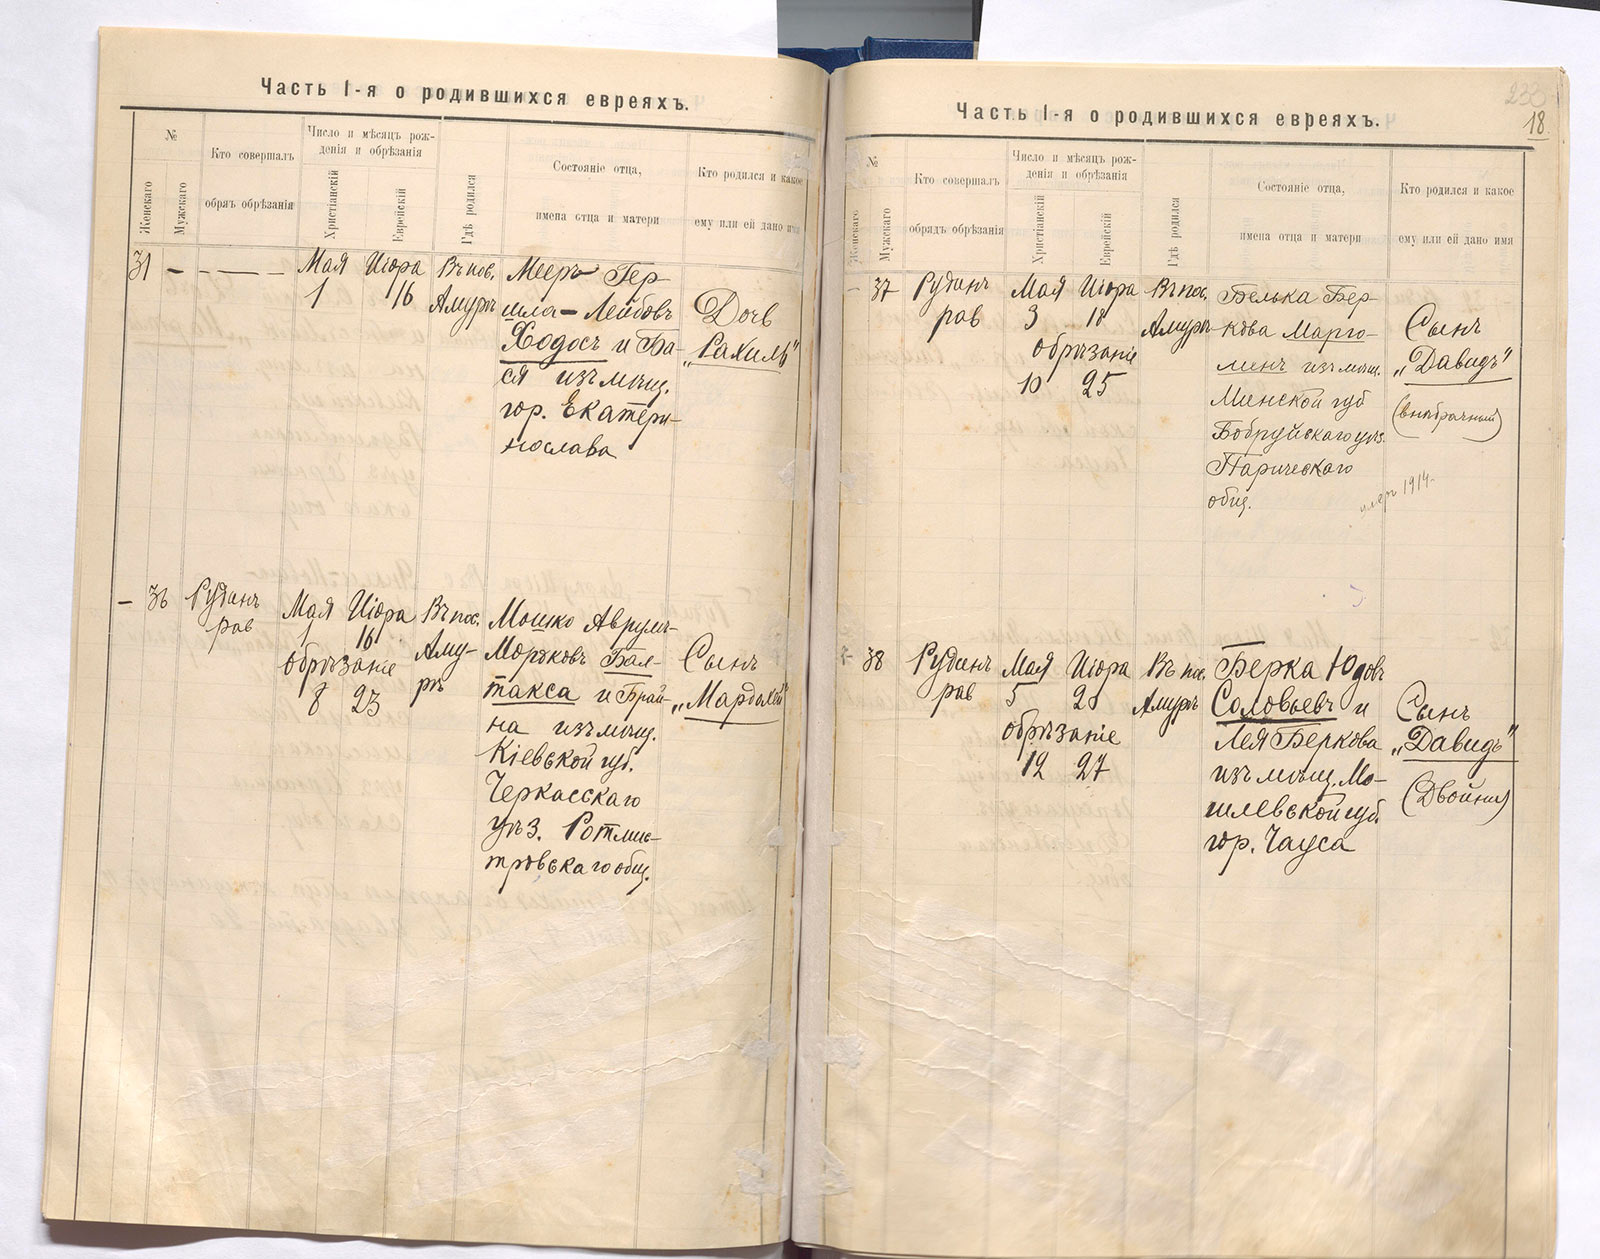 Часть I-я о родившихся евреяхъ.
№
Женскаго
Мужскаго
Кто совершалъ
обрядъ обрѣзанія
Число и мѣсяцъ рож-
денія и обрѣзанія
Христіанскій
Еврейскій
Гдѣ родился
Состояніе отца,
имена отца и матери
Кто родился и какое
ему или ей дано имя
31 – – — — –
Мая Иіора
1 16
Въ пос.
Амуръ
Мееръ Гер-
шла-Лейбовъ
Ходосъ и Ба-
ся изъ мѣщ.
гор. Екатери-
нослава
Дочь
„Рахиль"
– 36
Рудинъ
рав
Мая Иіора
1 16
обрѣзаніе
8 23
Въ пос.
Аму-
ръ
Мошко Аврумъ-
Морьковъ Бал-
такса и Брай-
на изъ мѣщ.
Кіевской губ.
Черкасскаго
уѣз. Ротмис-
тровскаго общ.
Сынъ
„Мардохей"
Часть I-я о родившихся евреяхъ.
233
18
№
Женскаго
Мужскаго
Кто совершалъ
обрядъ обрѣзанія
Число и мѣсяцъ рож-
денія и обрѣзанія
Христіанскій
Еврейскій
Гдѣ родился
Состояніе отца,
имена отца и матери
Кто родился и какое
ему или ей дано имя
– 37
Рудинъ
рав
Мая Иіора
3 18
обрѣзаніе
10 25
Въ пос.
Амуръ
Белька Бер-
кова Марго-
линъ изъ мѣщ.
Минской губ
Бобруйскаго уѣз.
Паричскаго
общ.
Сынъ
„Давидъ"
(внѣбрачный)
умеръ 1914-
– 38
Рудинъ
рав
Мая Иіора
5 20
обрѣзаніе
12 27
Въ пос.
Амуръ
Берка Юдовъ
Соловьевъ и
Лея Беркова
изъ мѣщ. Мо-
гилевской губ.
гор. Чауса
Сынъ
„Давидъ"
(Двойни)